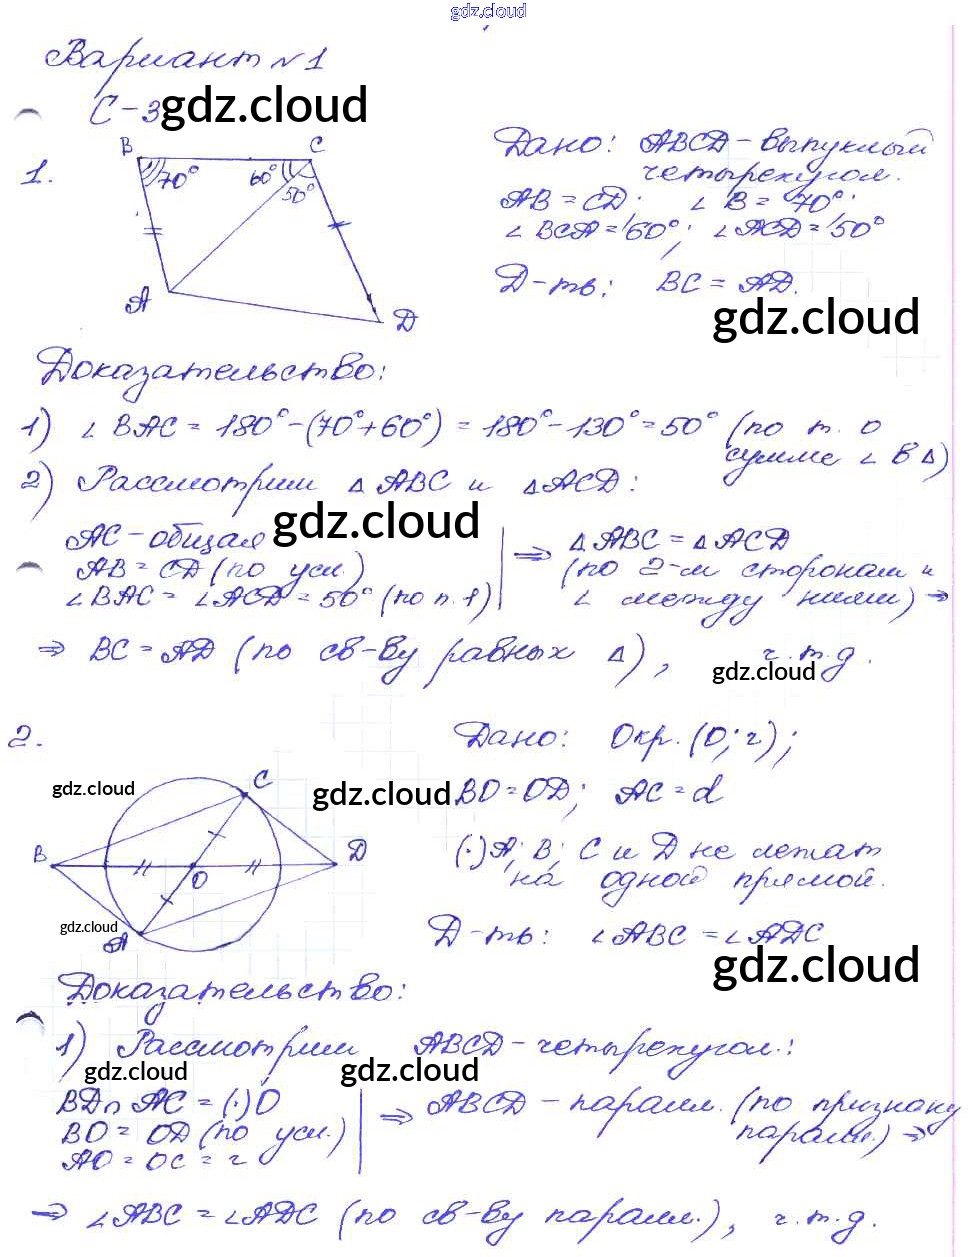 gdz.cloud
Вариант №1
С-3
gdz.cloud
1.
B
C
70°
60°
50°
A
D
Дано: ABCD - выпуклый
четырехугол.
AB = CD; ∠B = 70°;
∠BCA = 60°; ∠ACD = 50°
Д-ть: BC = AD.
gdz.cloud
Доказательство:
1) ∠BAC = 180° - (70° + 60°) = 180° - 130° = 50° (по т. о
сумме ∠ в Δ)
2) Рассмотрим ΔABC и ΔACD:
gdz.cloud
AC - общая
AB = CD (по усл.)
∠BAC = ∠ACD = 50° (по п.1)
⇒ ΔABC = ΔACD
(по 2-м сторонам и
∠ между ними) ⇒
⇒ BC = AD (по св-ву равных Δ), ч.т.д.
gdz.cloud
2.
gdz.cloud
gdz.cloud
B
C
D
O
A
gdz.cloud
Дано: Окр. (O; r);
BO = OD; AC = d
(·) A; B; C и D не лежат
на одной прямой.
Д-ть: ∠ABC = ∠ADC
gdz.cloud
Доказательство:
1) Рассмотрим ABCD - четырехугол.:
gdz.cloud
gdz.cloud
BD ∩ AC = (·) O
BO = OD (по усл.)
AO = OC = r
⇒ ABCD - паралл. (по признаку
паралл.) ⇒
⇒ ∠ABC = ∠ADC (по св-ву паралл.), ч.т.д.